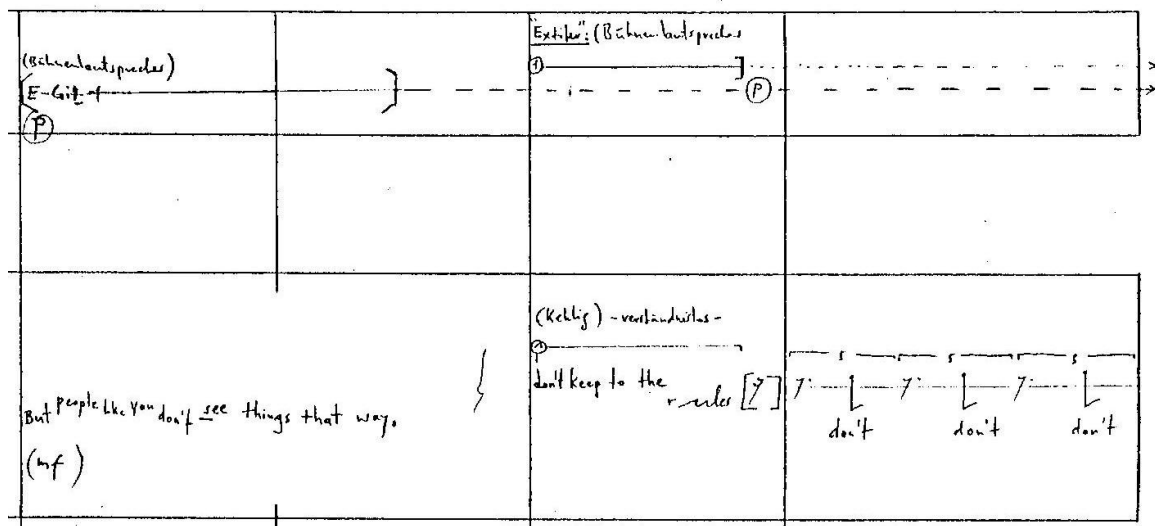 "Extiler": (Bühnenlautsprecher
(Bühnenlautsprecher)
①
E-Git
P
P
(Kehlig) - verständnislos -
①
don't keep to the rules [7]
5 5 5
7· 7· 7·
don't don't don't
But people like you don't see things that way.
(mf)